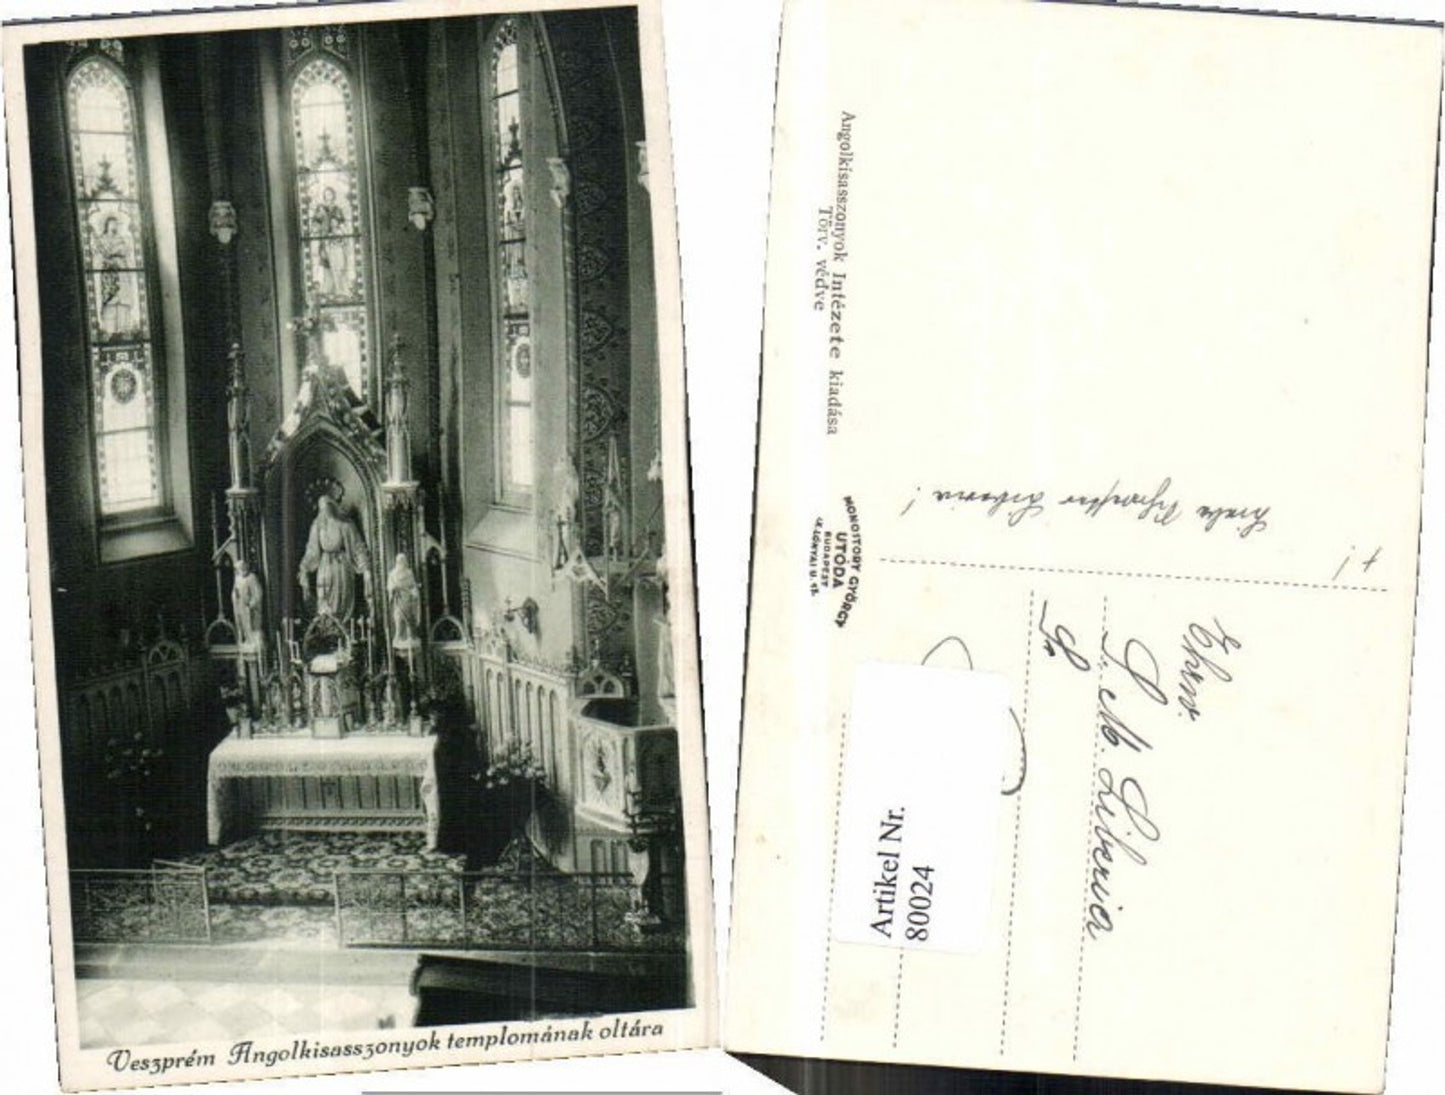 Veszprém Angolkisasszonyok templomának oltára
Angolkisasszonyok Intézete kiadása
Törv. védve
MONOSTORY GYÖRGY
UTÓDA
BUDAPEST
Liberia!
+!
Ehrw.
S. M. Liberia
Artikel Nr.
80024